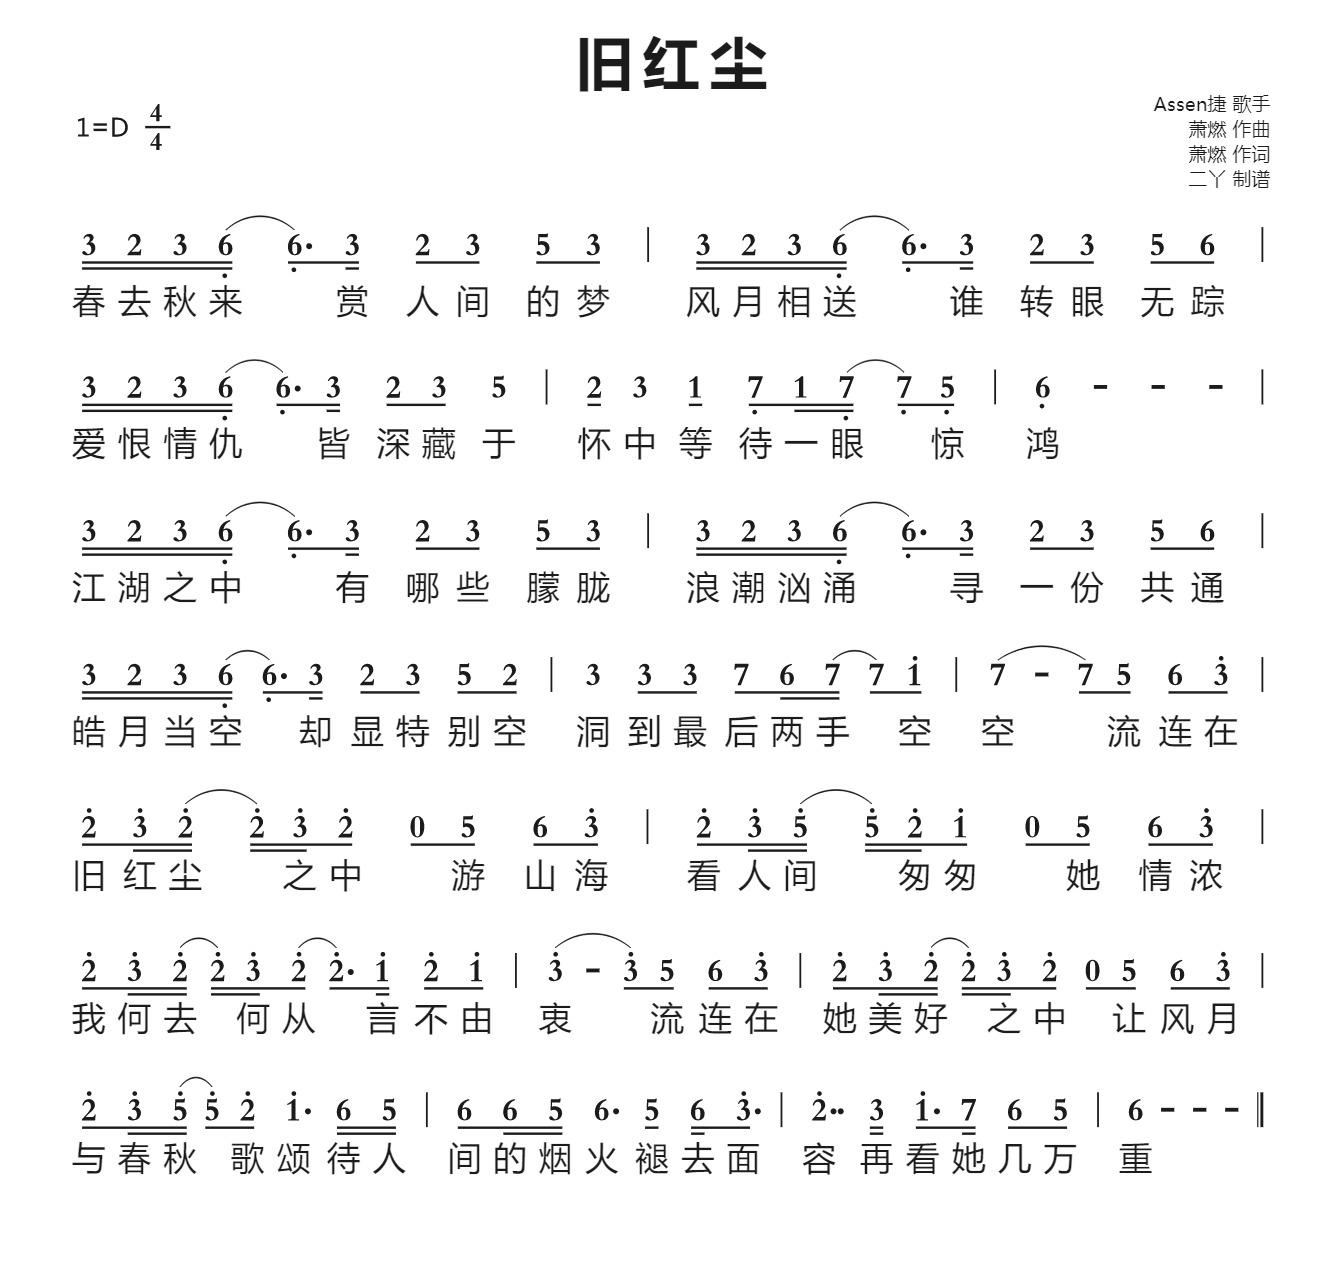 旧红尘
1=D 4/4
Assen捷 歌手
萧燃 作曲
萧燃 作词
二丫 制谱
3 2 3 6 6· 3 2 3 5 3 | 3 2 3 6 6· 3 2 3 5 6 |
春去秋来 赏 人间 的梦 风月相送 谁 转眼 无踪
3 2 3 6 6· 3 2 3 5 | 2 3 1 7 1 7 7 5 | 6 - - - |
爱恨情仇 皆 深藏 于 怀中 等 待一眼 惊 鸿
3 2 3 6 6· 3 2 3 5 3 | 3 2 3 6 6· 3 2 3 5 6 |
江湖之中 有 哪些 朦胧 浪潮汹涌 寻 一份 共通
3 2 3 6 6· 3 2 3 5 2 | 3 3 3 7 6 7 7 1 | 7 - 7 5 6 3 |
皓月当空 却 显特 别空 洞 到最 后两手 空 空 流 连在
2 3 2 2 3 2 0 5 6 3 | 2 3 5 5 2 1 0 5 6 3 |
旧红尘 之中 游 山海 看人间 匆匆 她 情浓
2 3 2 2 3 2 2· 1 2 1 | 3 - 3 5 6 3 | 2 3 2 2 3 2 0 5 6 3 |
我何去 何从 言 不由 衷 流 连在 她美好 之中 让 风月
2 3 5 5 2 1· 6 5 | 6 6 5 6· 5 6 3· | 2·· 3 1· 7 6 5 | 6 - - -
与春秋 歌颂 待人 间的烟火 褪去面 容 再看她几万 重